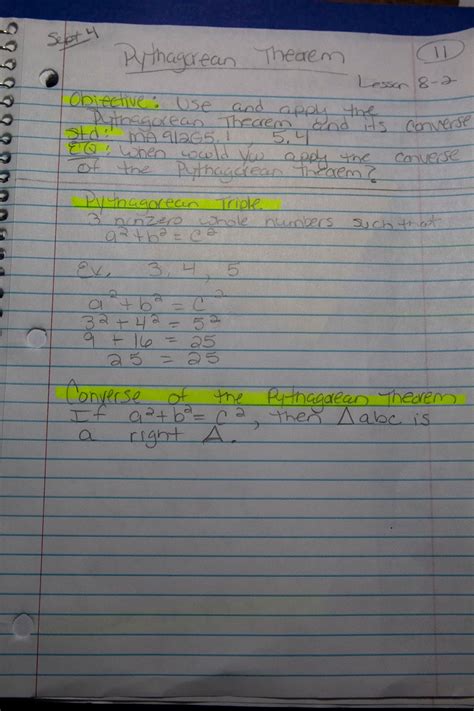 Sept 4
Pythagorean Theorem
11
Lesson 8-2
Objective: Use and apply the
Pythagorean Theorem and its converse
Std: MA.912.G.5.1, 5.4
EQ: When would you apply the converse
of the Pythagorean Theorem?
Pythagorean Triple
3 nonzero whole numbers such that
a²+b²=c²
Ex. 3, 4, 5
a²+b²=c²
3²+4²=5²
9+16=25
25=25
Converse of the Pythagorean Theorem
If a²+b²=c², then △abc is
a right △.